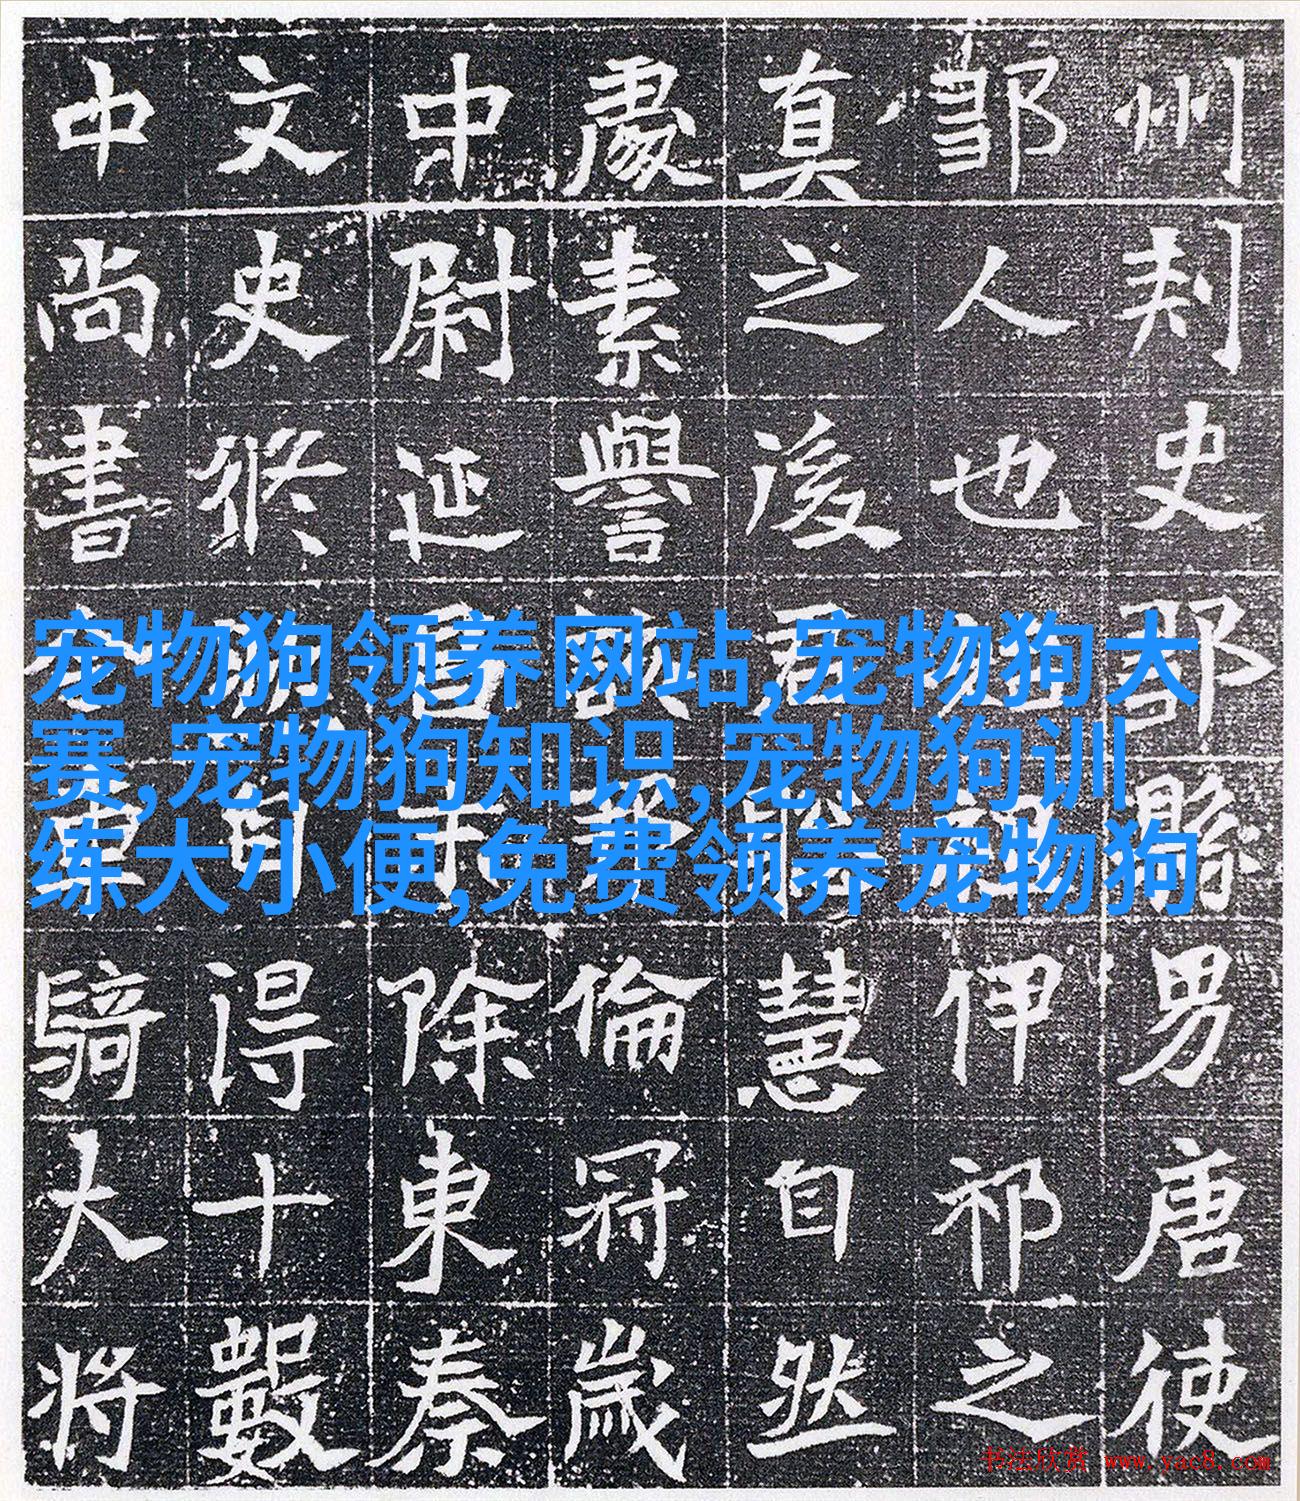 州刺史鄒縣男唐使
鄒人也伊祁之
真之後君慧自然
處素譽倫冠歲
中尉延除東秦
文史得十數
中尚書車騎大將
宠物狗领养网站,宠物狗大
赛,宠物狗知识,宠物狗训
练大小便,免费领养宠物狗
书法欣赏 www.yac8.com